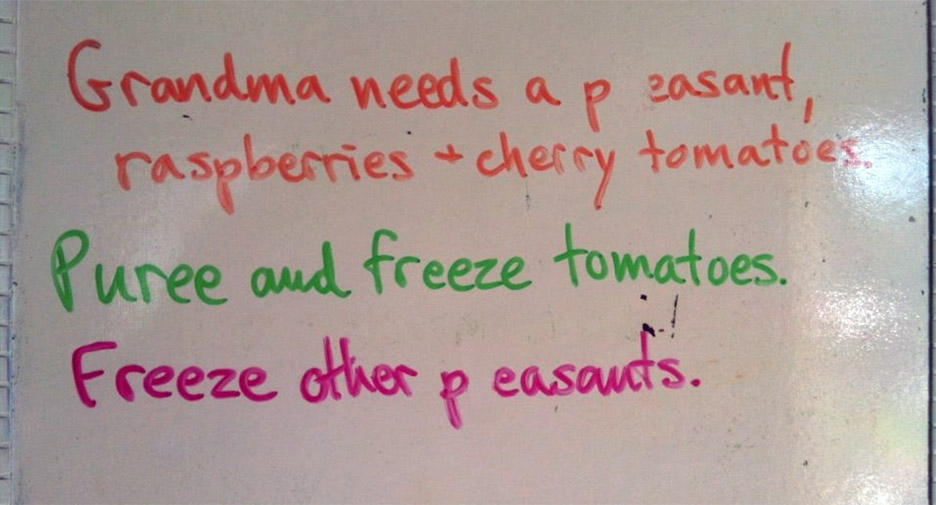 Grandma needs a p easant,
raspberries + cherry tomatoes.
Puree and freeze tomatoes.
Freeze other p easants.